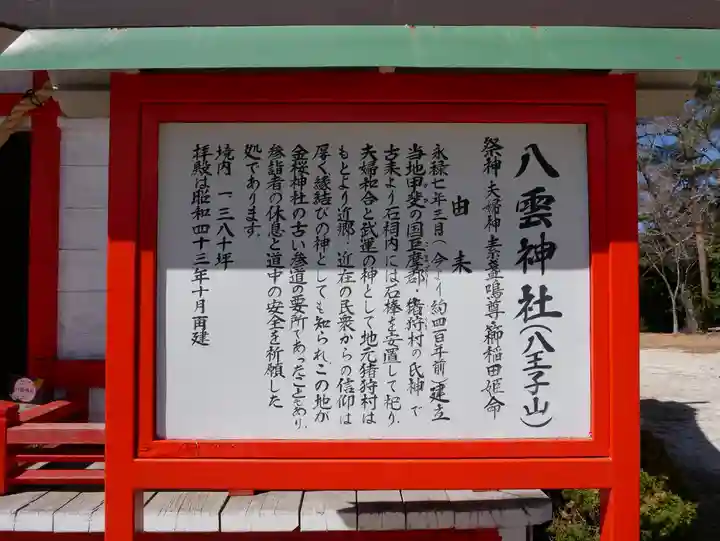 八雲神社(八王子山)
祭神 夫婦神 素盞鳴尊・櫛稲田姫命
由来
永禄七年三月(今より約四百年前)建立
当地甲斐の国巨摩郡・猪狩村の氏神で
古来より石祠内には石棒を安置して祀り、
夫婦和合と武運の神として地元猪狩村は
もとより近郷・近在の民衆からの信仰は
厚く縁結びの神としても知られ、この地が
金桜神社の古い参道の要所であったこともあり、
参詣者の休息と道中の安全を祈願した
処であります。
境内 一、三八十坪
拝殿は昭和四十三年十月再建